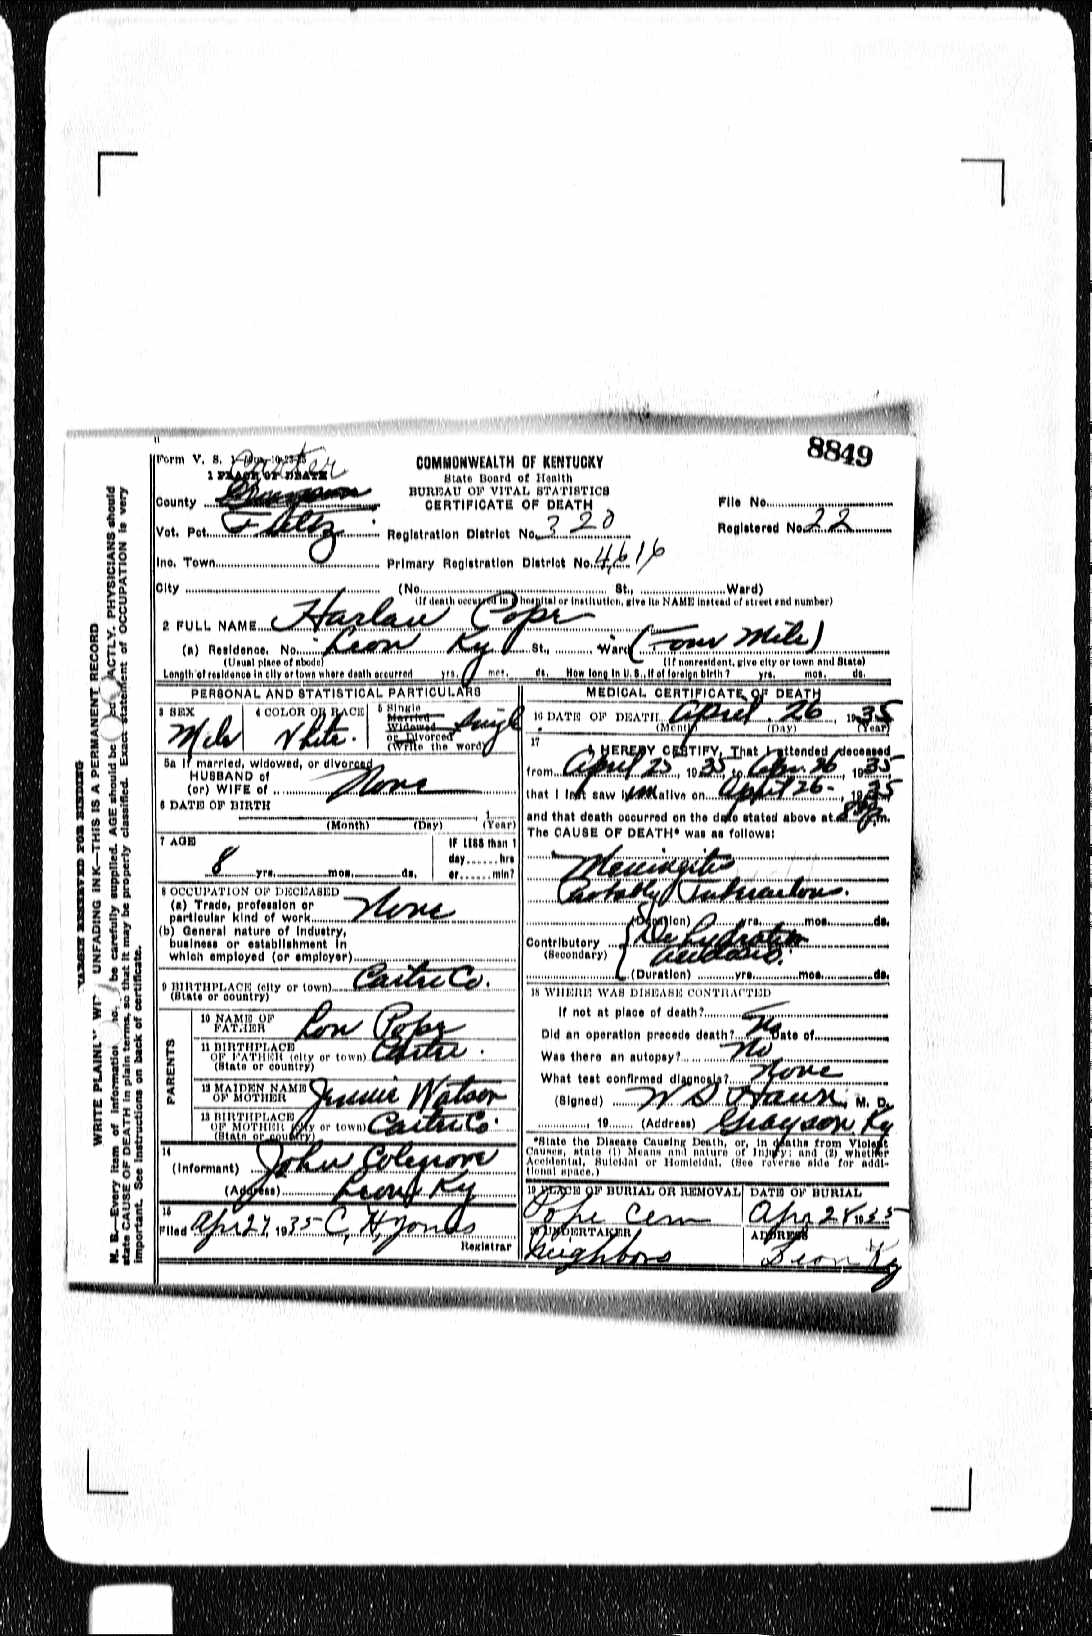 8849
Form V. S.
Carter
1 PLACE OF DEATH
County
Vot. Pct. Fultz
Inc. Town
City (No. St., Ward)
COMMONWEALTH OF KENTUCKY
State Board of Health
BUREAU OF VITAL STATISTICS
CERTIFICATE OF DEATH
Registration District No. 320
Primary Registration District No. 4616
File No.
Registered No. 22
(If death occurred in a hospital or institution, give its NAME instead of street and number)
2 FULL NAME Harlan Pope
(a) Residence. No. Leon Ky St., Ward (Four Mile)
(Usual place of abode) (If nonresident, give city or town and State)
Length of residence in city or town where death occurred yrs. mos. ds. How long in U. S., if of foreign birth? yrs. mos. ds.
PERSONAL AND STATISTICAL PARTICULARS
3 SEX Male
4 COLOR OR RACE White
5 Single
Married
Widowed
or Divorced
(Write the word) Single
5a If married, widowed, or divorced
HUSBAND of
(or) WIFE of None
6 DATE OF BIRTH
1
(Month) (Day) (Year)
7 AGE
8 yrs. mos. ds.
IF LESS than 1
day hrs
or min?
8 OCCUPATION OF DECEASED
(a) Trade, profession or
particular kind of work None
(b) General nature of industry,
business or establishment in
which employed (or employer)
9 BIRTHPLACE (city or town) Carter Co.
(State or country)
PARENTS
10 NAME OF
FATHER Lon Pope
11 BIRTHPLACE
OF FATHER (city or town) Carter
(State or country)
12 MAIDEN NAME
OF MOTHER Jennie Watson
13 BIRTHPLACE
OF MOTHER (city or town) Carter Co.
(State or country)
14
(Informant) John Colegrove
(Address) Leon Ky
15
Filed Apr 27, 1935 C. H. Jones
Registrar
MEDICAL CERTIFICATE OF DEATH
16 DATE OF DEATH April 26 1935
(Month) (Day) (Year)
17
I HEREBY CERTIFY, That I attended deceased
from April 25 1935, to Apr. 26, 1935
that I last saw him alive on April 26, 1935
and that death occurred on the date stated above at 8 P.m.
The CAUSE OF DEATH* was as follows:
Meningitis
Probably Tubercular.
(Duration) yrs. mos. ds.
Contributory Dehydration
(Secondary)
(Duration) yrs. mos. ds.
18 WHERE WAS DISEASE CONTRACTED
If not at place of death?
Did an operation precede death? No Date of
Was there an autopsy? No
What test confirmed diagnosis? None
(Signed) M. D.
, 19 (Address) Grayson, Ky
*State the Disease Causing Death, or, in deaths from Violent
Causes, state (1) Means and nature of Injury; and (2) whether
Accidental, Suicidal or Homicidal. (See reverse side for addi-
tional space.)
19 PLACE OF BURIAL OR REMOVAL
Pope Cem
DATE OF BURIAL
Apr 28 1935
20 UNDERTAKER
Neighbors
ADDRESS
Leon Ky
MARGIN RESERVED FOR BINDING
WRITE PLAINLY WITH UNFADING INK—THIS IS A PERMANENT RECORD
N. B.—Every item of information should be carefully supplied. AGE should be stated EXACTLY. PHYSICIANS should
state CAUSE OF DEATH in plain terms, so that it may be properly classified. Exact statement of OCCUPATION is very
important. See instructions on back of certificate.